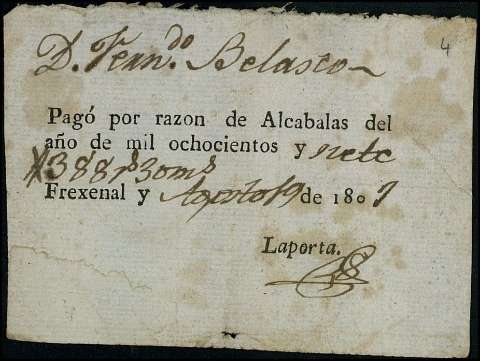 4
D. Fern.do Belasco
Pagó por razon de Alcabalas del
año de mil ochocientos y siete
388 rs 30 ms
Frexenal y Agosto 19 de 1807
Laporta.